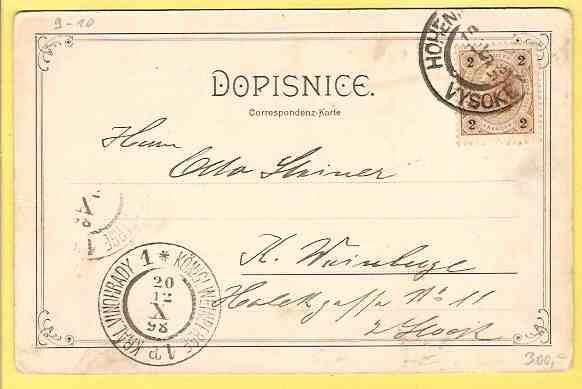 9-10
HOHEN
VYSOKÉ
2 2
2 2
DOPISNICE.
Correspondenz-Karte
Herrn
Otto Steiner
K. Weinberge
Halekgasse No 11
2 Stock
KRÁL. VINOHRADY 1 * KÖNIGL. WEINBERGE 1
20
12
X
98
300,-